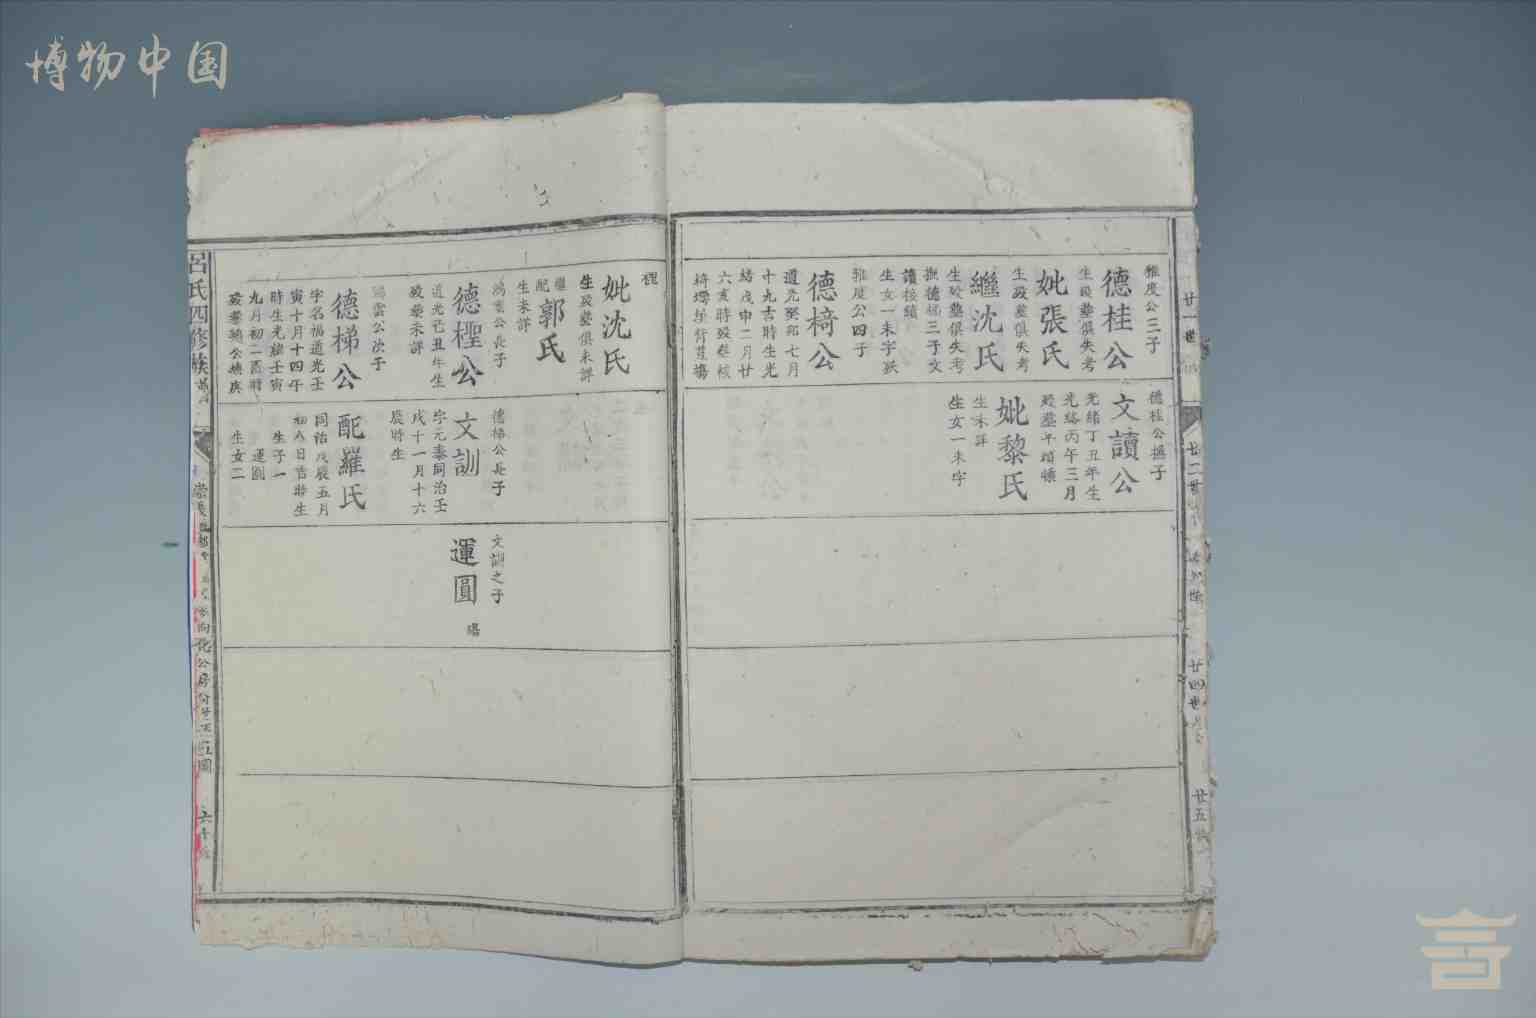 博物中国
廿一世
廿二世
廿四世
廿五世
雅度公三子
德桂公
生殁塟俱失考
妣張氏
生殁塟俱失考
繼沈氏
生殁塟俱失考
撫德楠三子文
讀接續
生女一未字殀
雅度公四子
德椅公
道光癸卯七月
十九吉時生光
緒戊申二月廿
六亥時殁塟核
德桂公撫子
文讀公
光緒丁丑年生
光緒丙午三月
妣黎氏
生未詳
生女一未字
妣沈氏
生殁塟俱未詳
繼配郭氏
生未詳
鴻業公長子
德樫公
道光己丑年生
殁塟未詳
鴻雲公次子
德梯公
字名福道光壬
寅十月十四午
時生光緒壬寅
九月初二酉時
德梯公長子
文訓
字元泰同治壬
戌十一月十六
辰時生
配羅氏
同治戊辰五月
初六日酉時生
生子一
運圓
生女二
文訓之子
運圓
呂氏四修族譜
向化公房份世系五圖